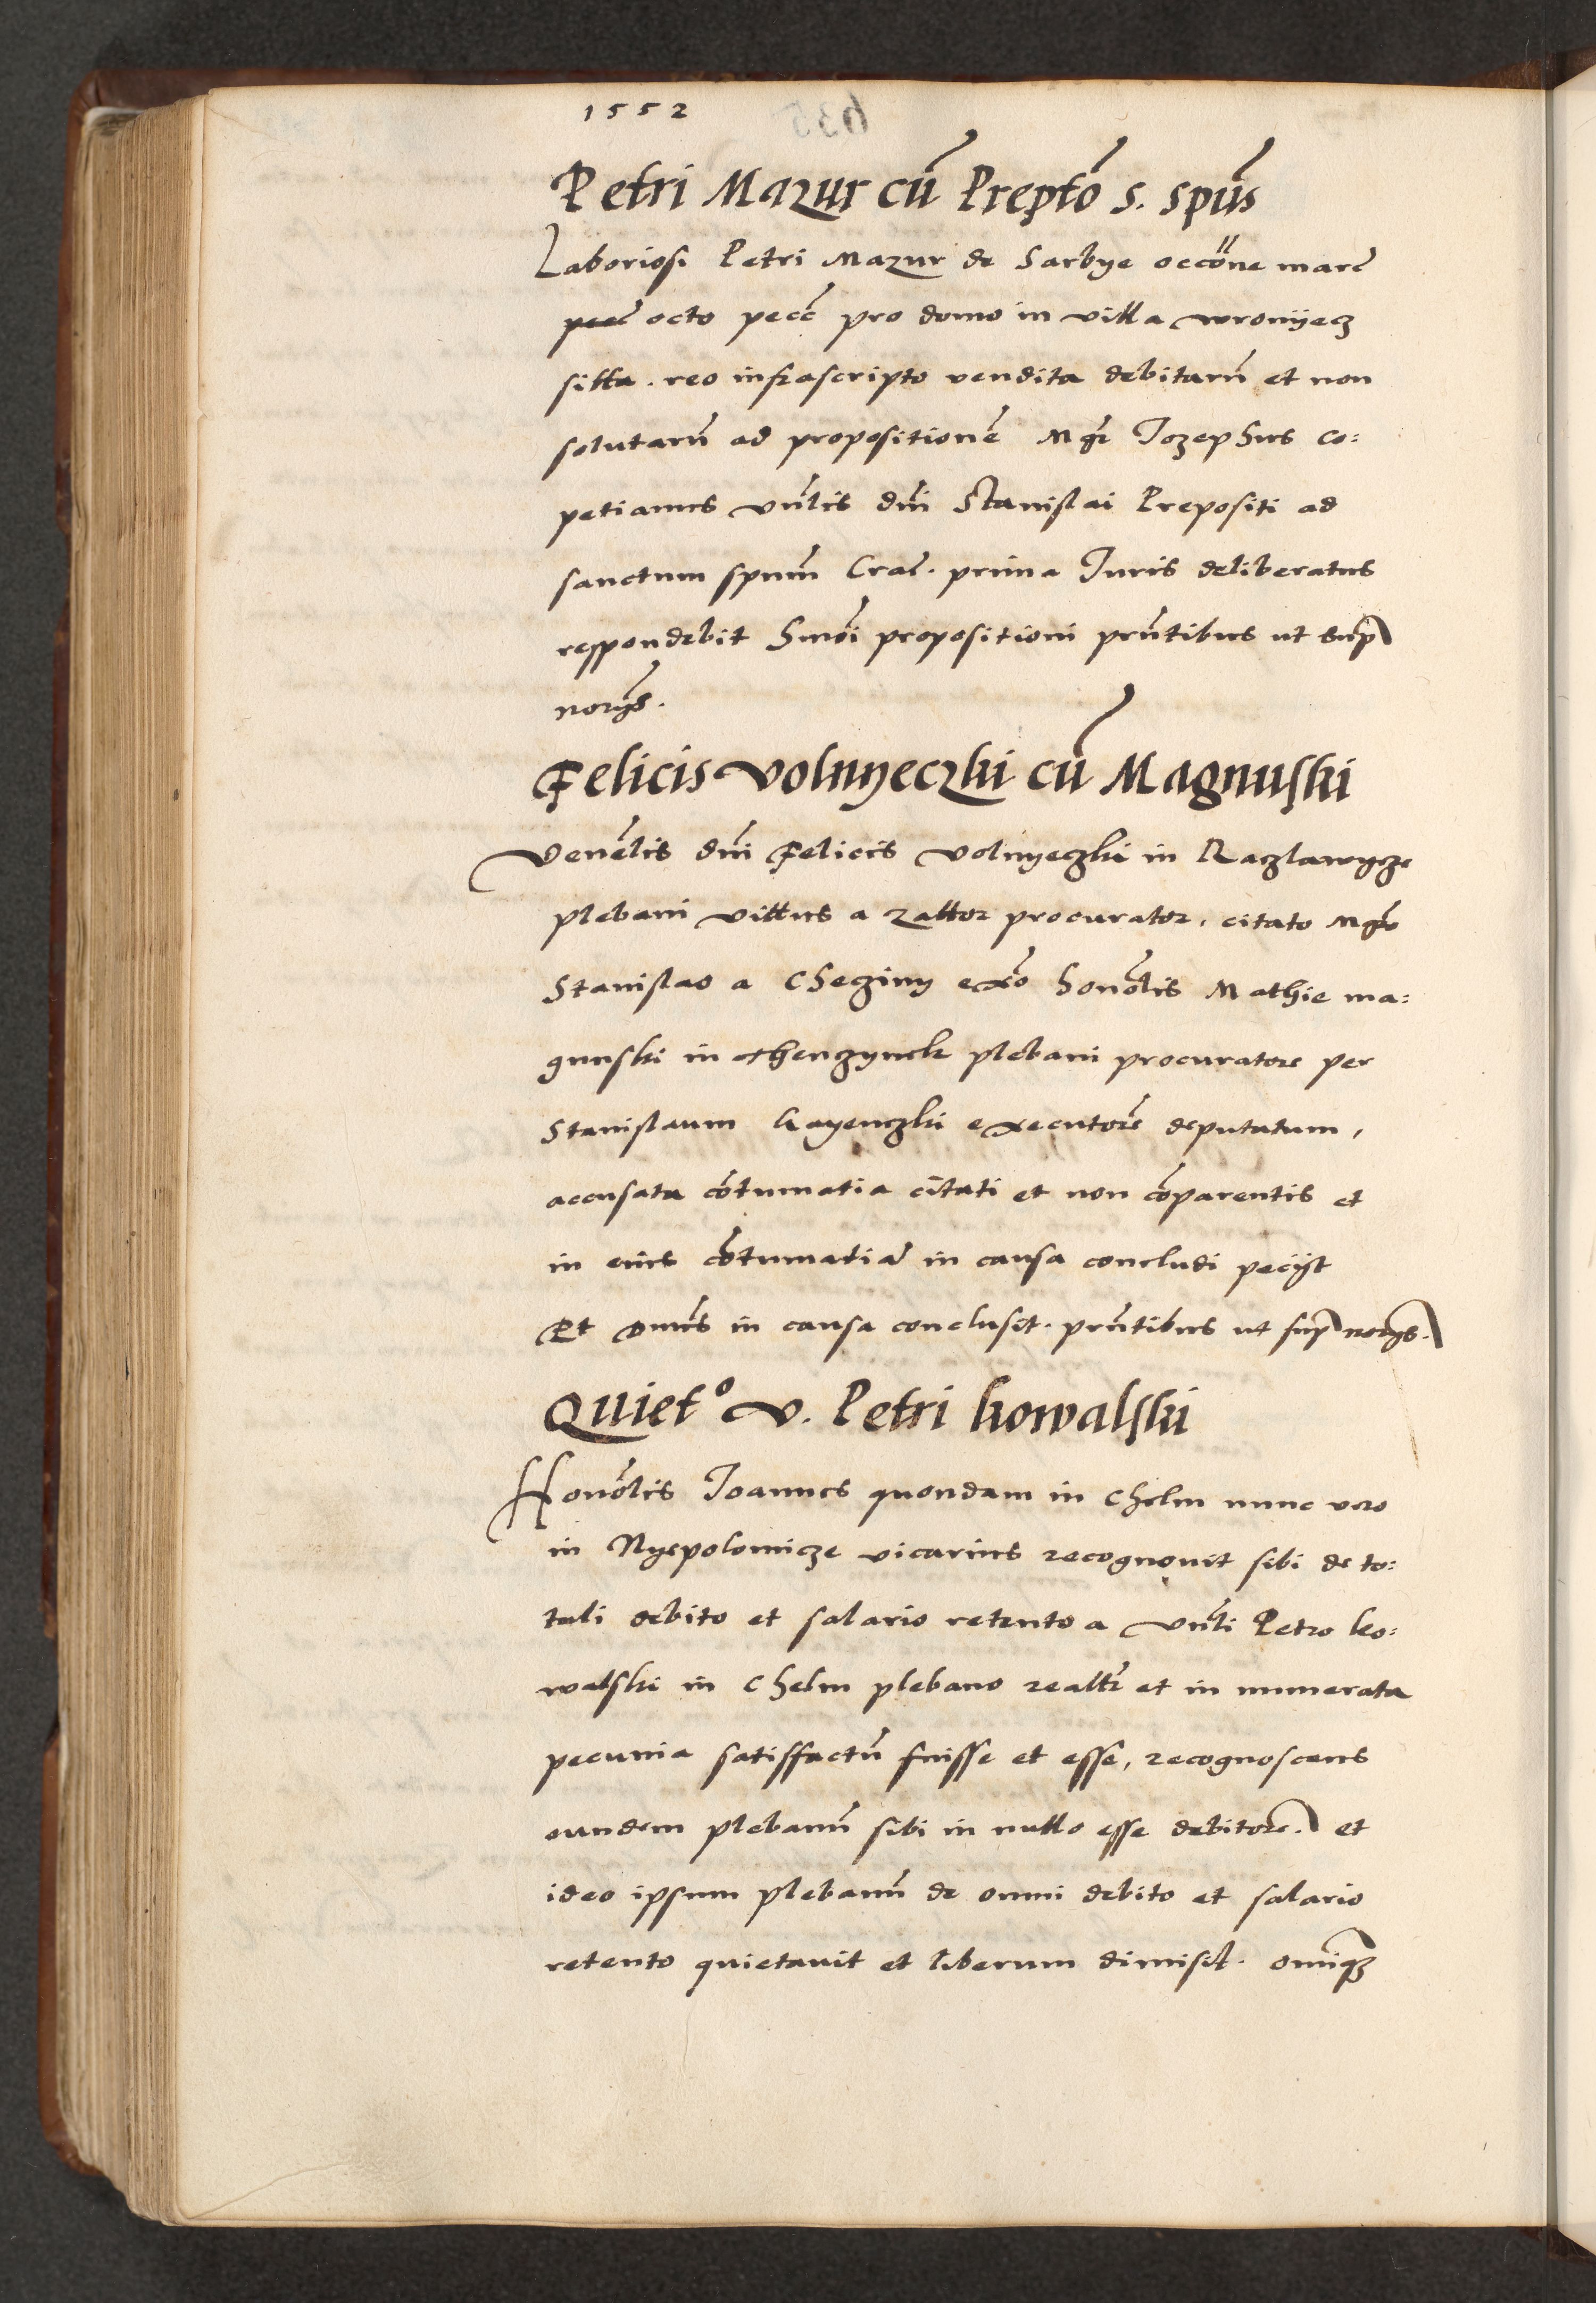 1552
635
Petri Mazur cū Prepto s. spūs
Laboriosi Petri Mazur de Sarbye occõne marc̃
octo pecc̃ pro domo in villa wronyecz
sitta. reo infrascripto vendita debitarū et non
solutarū ad propositionē Mgr̃ Jozephus Co:
petianus vñlis dñi Stanislai Prepositi ad
sanctum spum̃ Crac̃. prima Juris deliberatus
respondebit hmõi propositioni pr̃ntibus ut sup̃
norys̃.
Felicis Volnyeczki cū Magnuski
Venẽlis dñi Felicis Volnyeczki in Raczlawycze
plebani vittus a zattor procurator, citato Mgrõ
Stanislao a Checziny ex̃o honõlis Mathie ma:
gnuski in thenczynek plebani procuratore per
Stanislaum Gayenczki executorẽ deputatum,
accusata cõtumatia citati et non cõparentis et
in eius cõtumatiã in causa concludi pecyt
Et Dnus̃ in causa conclusit. pr̃ntibus ut sup̃ norys̃.
Quietº v. Petri kowalski
Honõlis Joannes quondam in Chelm nunc vero
in Nyepolomicze vicarius recognouit sibi de to:
tali debito et salario retento a vñli Petro ko:
walski in Chelm plebano realtr̃ et in numerata
pecunia satisfactū fuisse et esse, recognoscens
eundem plebanū sibi in nullo esse debitorẽ. et
ideo ipsum plebanū de omni debito et salario
retento quietauit et liberum dimisit. omiqʒ